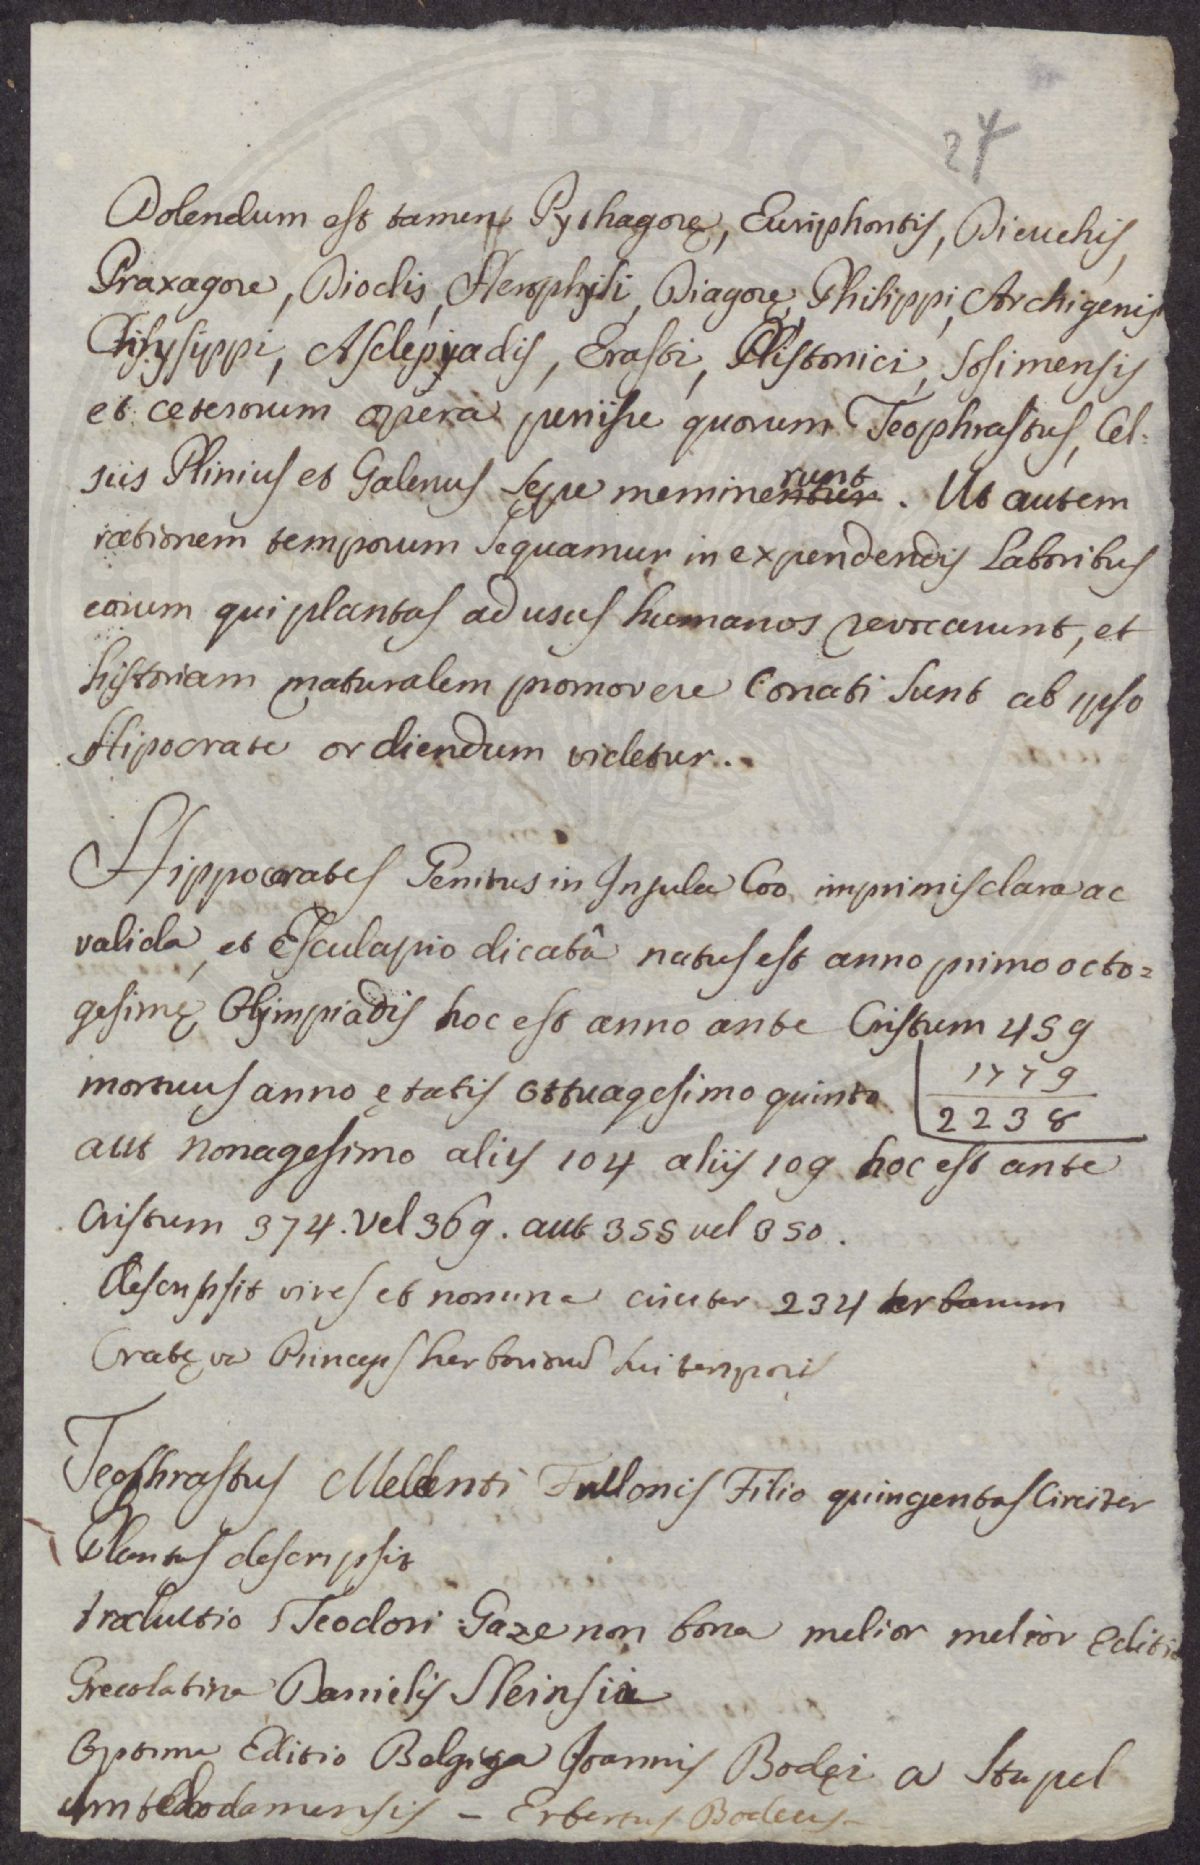 24
Dolendum est tamen Pythagorę, Euriphontis, Dieuchis,
Praxagore, Dioclis, Herophyli, Diagorę, Philippi, Archigenis
Chrysyppi, Asclepyadis, Erasti, Plistonici, Sosimensis
et ceterorum opera periisse quorum Teophrastus, Cel-
sus Plinius et Galenus sepe meminerunt. Ut autem
rationem temporum sequamur in expendendis Laboribus
eorum qui plantas ad usus humanos revocarunt, et
historiam naturalem promovere Conati sunt ab ipso
Hipocrate ordiendum videtur.
Hippocrates Genitus in Insula Coo imprimis clara ac
valida, et Esculapio dicatâ natus est anno primo octo=
gesimę Olympiadis hoc est anno ante Cristum 459
mortuus anno ętatis ottuagesimo quinto 1779
2238
aut nonagesimo aliis 104 aliis 109 hoc est ante
Cristum 374. vel 369. aut 355 vel 350.
descripsit vires et nomina circiter 234 herbarum
Cratęva Princeps herboriorum sui temporis
Teophrastus Melanti Fullonis Filio quingentas Circiter
Plantas descripsit
traductio Teodori Gaze non bona melior melior Editio
Grecolatina Danielis Heinsii
Optima Editio Belgiga Joannis Bodęi a Stapel
amstelodamensis – Erbertus Bodeus –